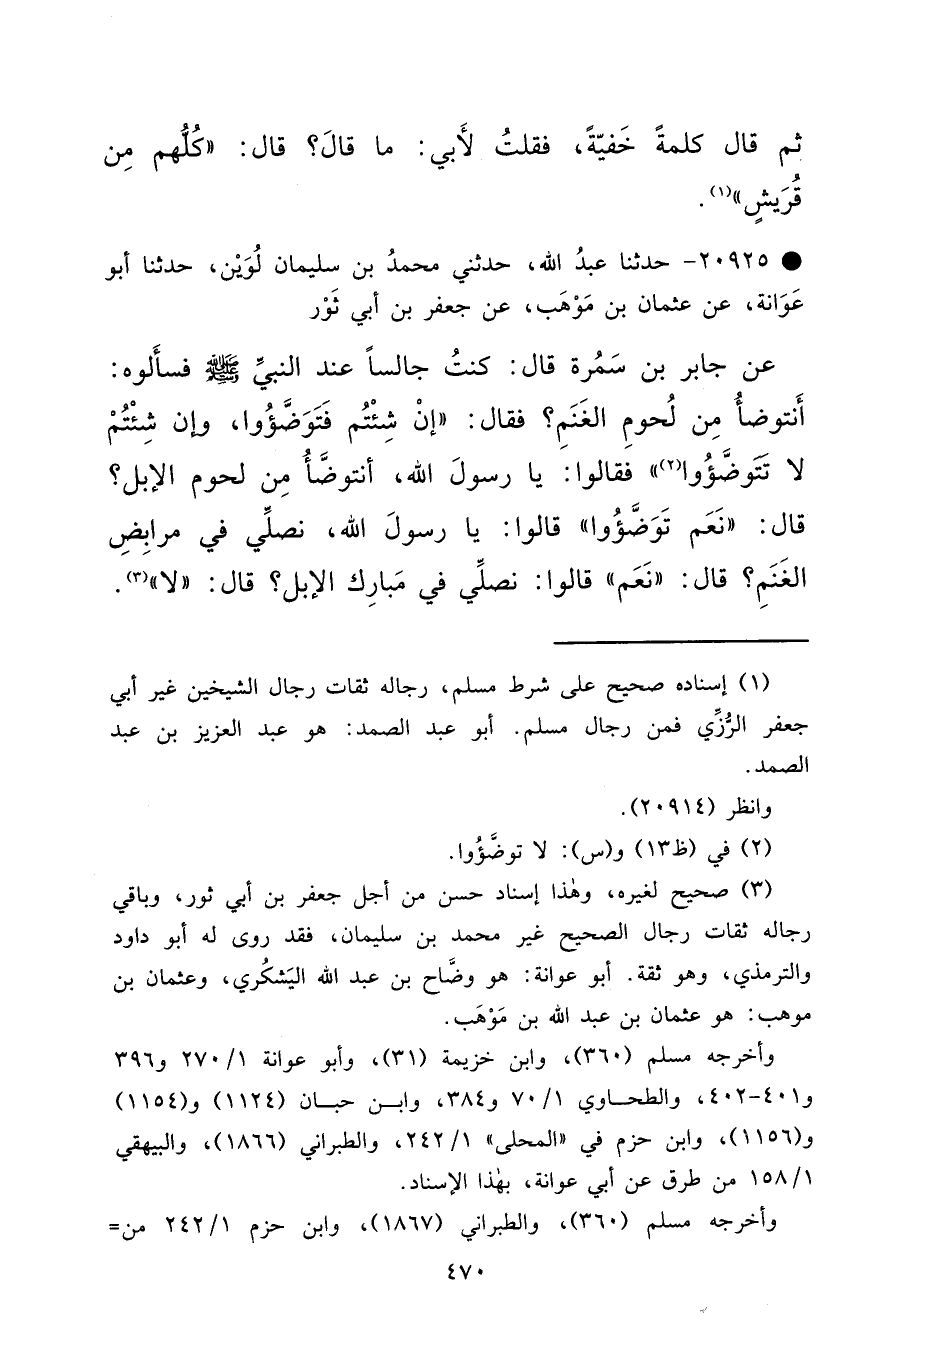 ثم قال كلمةً خَفيّةً، فقلتُ لأَبي: ما قالَ؟ قال: «كُلُّهم مِن
قُرَيشٍ»(١).
● ٢٠٩٢٥- حدثنا عبدُ الله، حدثني محمدُ بن سليمان لُوَيْن، حدثنا أبو
عَوَانة، عن عثمان بن مَوْهَب، عن جعفر بن أبي ثَوْر
عن جابر بن سَمُرة قال: كنتُ جالساً عند النبيِّ ﷺ فسأَلوه:
أَنتوضأُ مِن لُحومِ الغَنَمِ؟ فقال: «إنْ شِئْتُم فَتَوَضَّؤُوا، وإن شِئْتُمْ
لا تَتَوضَّؤُوا(٢)» فقالوا: يا رسولَ الله، أنتوضَّأُ مِن لحوم الإبل؟
قال: «نَعَم تَوَضَّؤُوا» قالوا: يا رسولَ الله، نصلِّي في مرابِضِ
الغَنَمِ؟ قال: «نَعَم» قالوا: نصلِّي في مَبارِك الإبل؟ قال: «لا»(٣).
(١) إسناده صحيح على شرط مسلم، رجاله ثقات رجال الشيخين غير أبي
جعفر الرُّزِّي فمن رجال مسلم. أبو عبد الصمد: هو عبد العزيز بن عبد
الصمد.
وانظر (٢٠٩١٤).
(٢) في (ظ١٣) و(س): لا توضَّؤُوا.
(٣) صحيح لغيره، وهٰذا إسناد حسن من أجل جعفر بن أبي ثور، وباقي
رجاله ثقات رجال الصحيح غير محمد بن سليمان، فقد روى له أبو داود
والترمذي، وهو ثقة. أبو عوانة: هو وضَّاح بن عبد الله اليَشكُري، وعثمان بن
موهب: هو عثمان بن عبد الله بن مَوْهَب.
وأخرجه مسلم (٣٦٠)، وابن خزيمة (٣١)، وأبو عوانة ١/ ٢٧٠ و٣٩٦
و٤٠١-٤٠٢، والطحاوي ١/ ٧٠ و٣٨٤، وابن حبان (١١٢٤) و(١١٥٤)
و(١١٥٦)، وابن حزم في «المحلى» ١/ ٢٤٢، والطبراني (١٨٦٦)، والبيهقي
١/ ١٥٨ من طرق عن أبي عوانة، بهٰذا الإسناد.
وأخرجه مسلم (٣٦٠)، والطبراني (١٨٦٧)، وابن حزم ١/ ٢٤٢ من=
٤٧٠